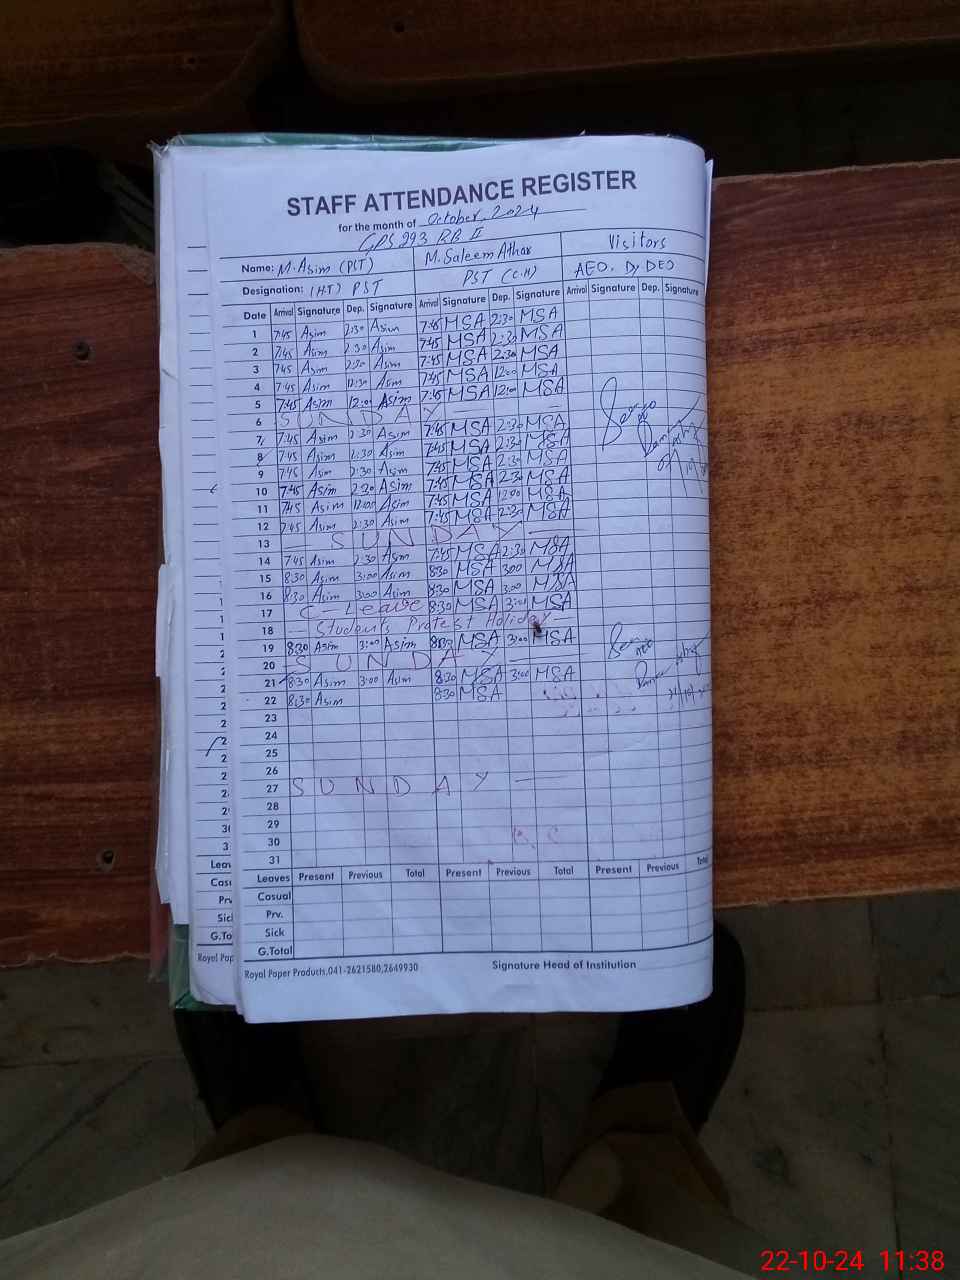 STAFF ATTENDANCE REGISTER
for the month of October, 2024
GPS 293 RB II
Name: M. Asim (PLT) M. Saleem Athar Visitors
Designation: (H.T) PST PST (C.H) AEO. Dy DEO
Date Arrival Signature Dep. Signature Arrival Signature Dep. Signature Arrival Signature Dep. Signature
1 7:45 Asim 2:30 Asim 7:45 MSA 2:30 MSA
2 7:45 Asim 2:30 Asim 7:45 MSA 2:30 MSA
3 7:45 Asim 2:30 Asim 7:45 MSA 2:30 MSA
4 7:45 Asim 12:30 Asim 7:45 MSA 12:00 MSA
5 7:45 Asim 12:00 Asim 7:45 MSA 12:00 MSA
6 SUNDAY
7 7:45 Asim 2:30 Asim 7:45 MSA 2:30 MSA
8 7:45 Asim 2:30 Asim 7:45 MSA 2:30 MSA
9 7:45 Asim 2:30 Asim 7:45 MSA 2:30 MSA
10 7:45 Asim 2:30 Asim 7:45 MSA 2:30 MSA
11 7:45 Asim 12:00 Asim 7:45 MSA 12:00 MSA
12 7:45 Asim 2:30 Asim 7:45 MSA 2:30 MSA
13 SUNDAY
14 7:45 Asim 2:30 Asim 7:45 MSA 2:30 MSA
15 8:30 Asim 3:00 Asim 8:30 MSA 3:00 MSA
16 8:30 Asim 3:00 Asim 8:30 MSA 3:00 MSA
17 C-Leave 8:30 MSA 3:00 MSA
18 Students Protest Holiday
19 8:30 Asim 3:00 Asim 8:30 MSA 3:00 MSA
20 SUNDAY
21 8:30 Asim 3:00 Asim 8:30 MSA 3:00 MSA
22 8:30 Asim 8:30 MSA
23
24
25
26
27 SUNDAY
28
29
30
31
Leaves Present Previous Total Present Previous Total Present Previous Total
Casual
Prv.
Sick
G.Total
Royal Paper Products,041-2621580,2649930 Signature Head of Institution
22-10-24 11:38